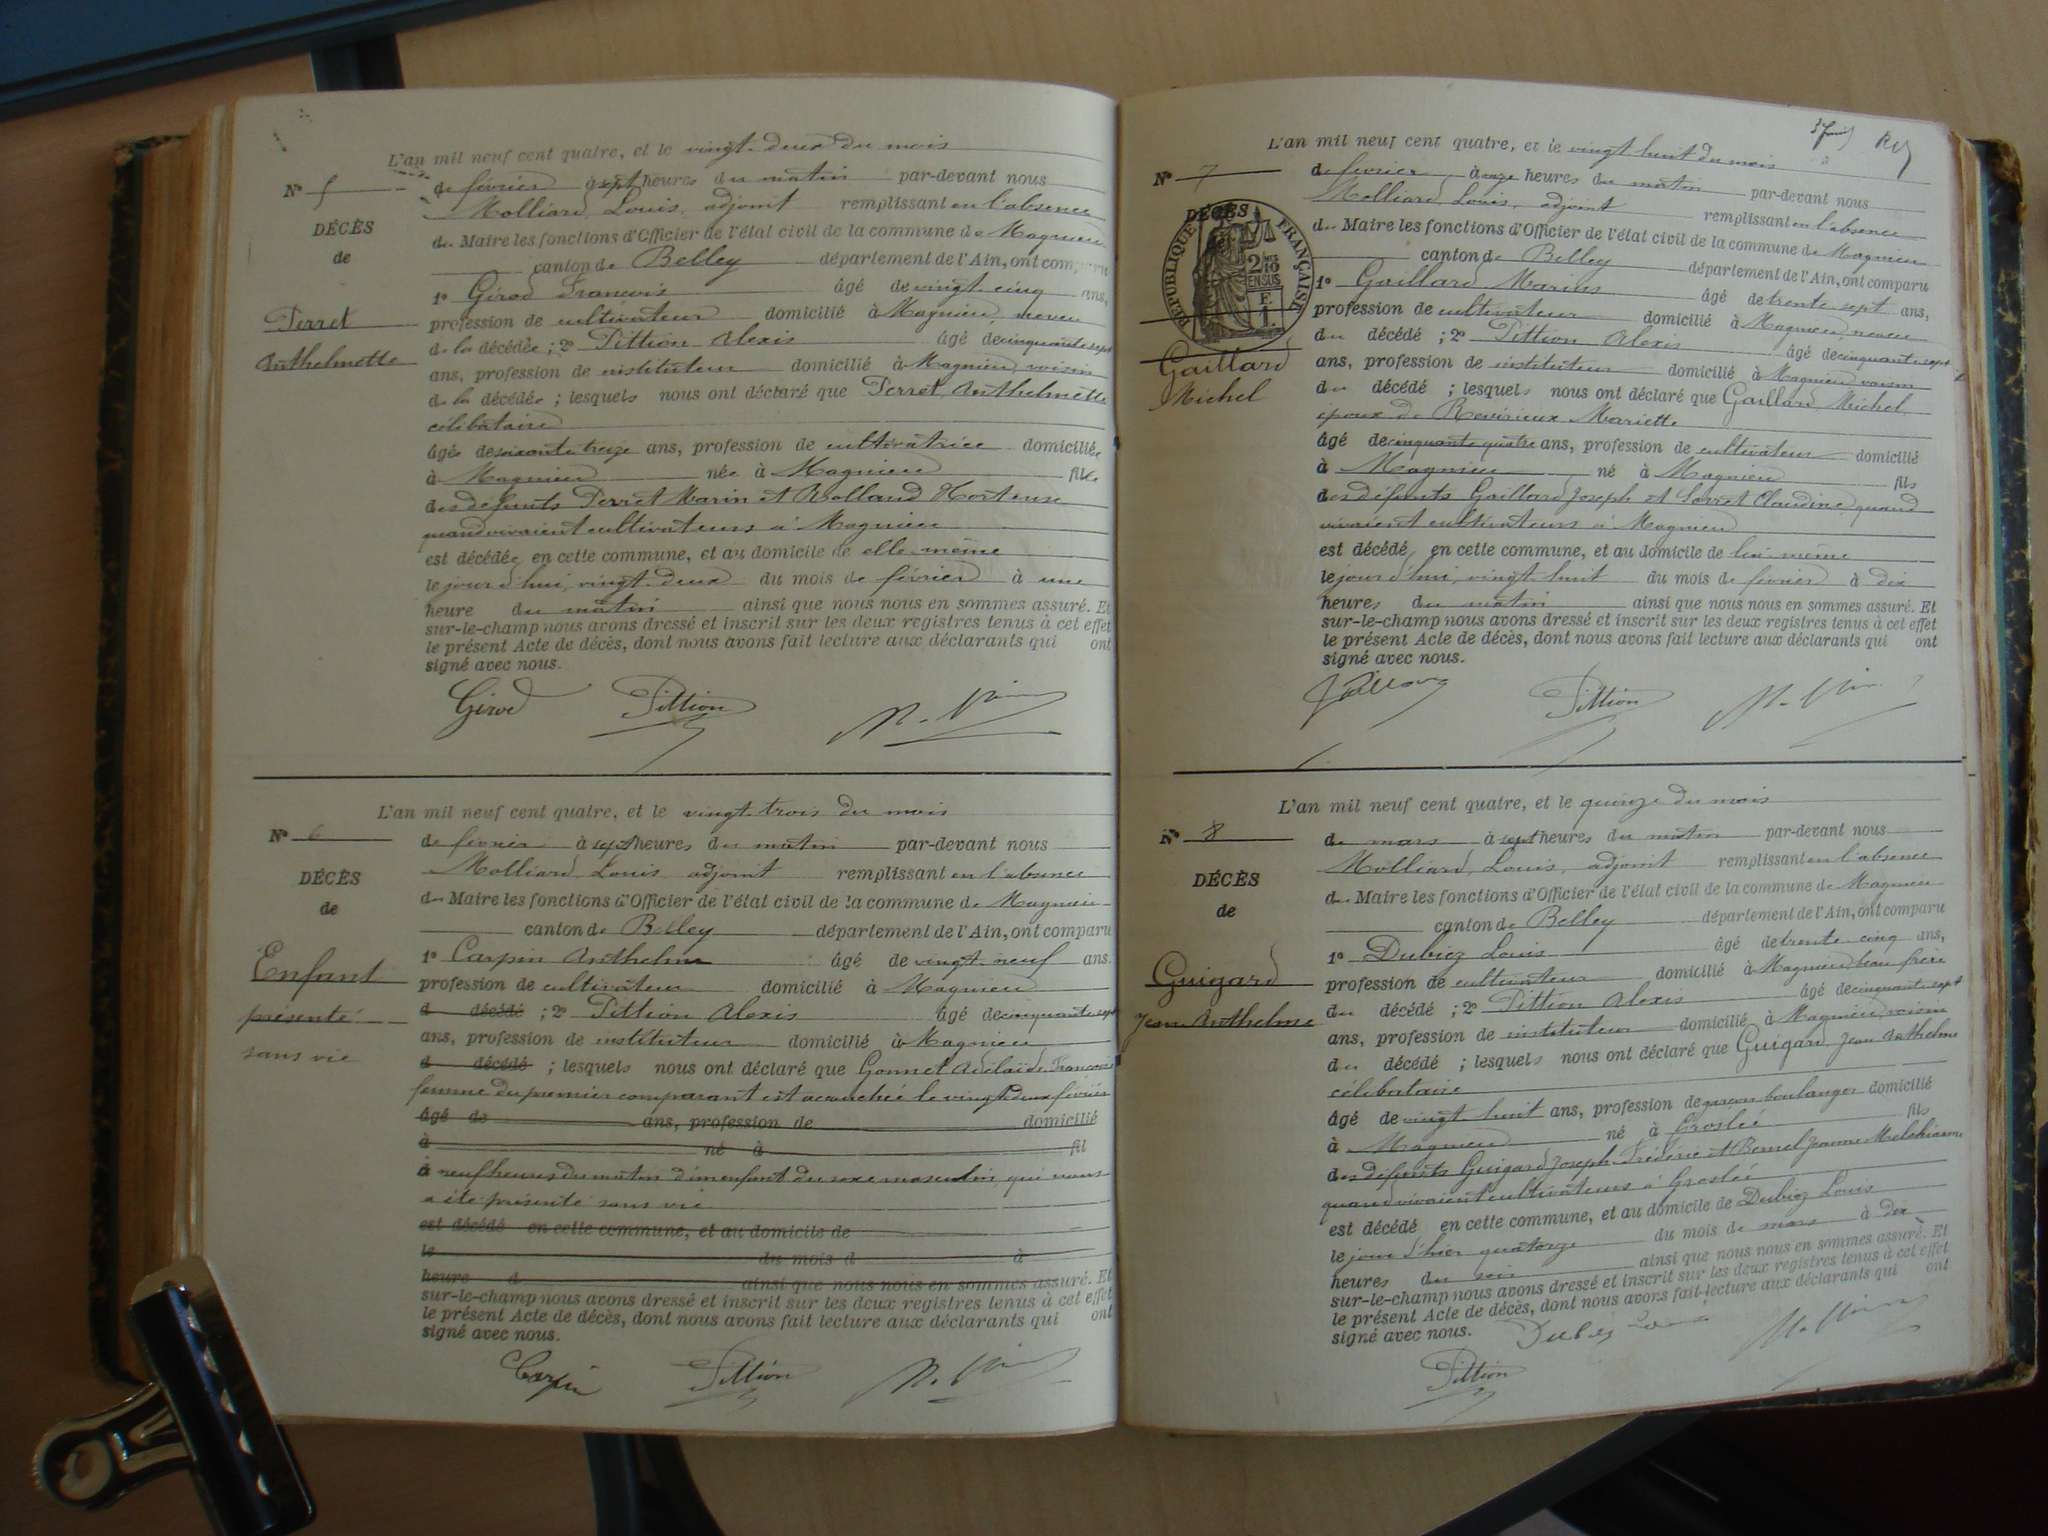 L'an mil neuf cent quatre, et le vingt deux du mois
N° 5
de février à sept heures du matin par-devant nous
Molliard Louis, adjoint remplissant en l'absence
DÉCÈS
du Maire les fonctions d'Officier de l'état civil de la commune de Magnieu
de
canton de Belley département de l'Ain, ont comparu
1° Girod François âgé de vingt cinq ans,
Perret
profession de cultivateur domicilié à Magnieu, neveu
Anthelmette
de la décédée ; 2° Pittion Alexis âgé de cinquante sept
ans, profession de instituteur domicilié à Magnieu voisin
de la décédée ; lesquels nous ont déclaré que Perret Anthelmette
célibataire
âgée de soixante treize ans, profession de cultivatrice domiciliée
à Magnieu née à Magnieu fille
des défunts Perret Marin et Rolland Hortense
quand vivaient cultivateurs à Magnieu
est décédée en cette commune, et au domicile de elle même
le jour d'hui, vingt deux du mois de février à une
heure du matin ainsi que nous nous en sommes assuré. Et
sur-le-champ nous avons dressé et inscrit sur les deux registres tenus à cet effet
le présent Acte de décès, dont nous avons fait lecture aux déclarants qui ont
signé avec nous.
Girod Pittion
L'an mil neuf cent quatre, et le vingt trois du mois
N° 6
de février à sept heures du matin par-devant nous
Molliard Louis adjoint remplissant en l'absence
DÉCÈS
du Maire les fonctions d'Officier de l'état civil de la commune de Magnieu
de
canton de Belley département de l'Ain, ont comparu
1° Carpin Anthelme âgé de vingt neuf ans.
Enfant
profession de cultivateur domicilié à Magnieu
présenté
d décédé ; 2° Pittion Alexis âgé de cinquante sept
ans, profession de instituteur domicilié à Magnieu
sans vie
d décédé ; lesquels nous ont déclaré que Gonnet Adélaïde Françoise
femme du premier comparant est accouchée le vingt deux février
âgé de ans, profession de domicilié
à né à fil
à neuf heures du matin d'un enfant du sexe masculin, qui nous
a été présenté sans vie
est décédé en cette commune, et au domicile de
le du mois d à
heure d ainsi que nous nous en sommes assuré. Et
sur-le-champ nous avons dressé et inscrit sur les deux registres tenus à cet effet
le présent Acte de décès, dont nous avons fait lecture aux déclarants qui ont
signé avec nous.
Carpin Pittion
L'an mil neuf cent quatre, et le vingt huit du mois
N° 7
de février à onze heures du matin par-devant nous
Molliard Louis, adjoint remplissant en l'absence
DÉCÈS
RÉPUBLIQUE FRANÇAISE
2/10 EN SUS
du Maire les fonctions d'Officier de l'état civil de la commune de Magnieu
canton de Belley département de l'Ain, ont comparu
1° Gaillard Marius âgé de trente sept ans,
profession de cultivateur domicilié à Magnieu neveu
du décédé ; 2° Pittion Alexis âgé de cinquante sept
Gaillard
ans, profession de instituteur domicilié à Magnieu voisin
Michel
du décédé ; lesquels nous ont déclaré que Gaillard Michel
époux de Mariette
âgé de cinquante quatre ans, profession de cultivateur domicilié
à Magnieu né à Magnieu fils
des défunts Gaillard Joseph et Claudine quand
vivaient cultivateurs à Magnieu
est décédé en cette commune, et au domicile de lui même
le jour d'hui, vingt huit du mois de février à dix
heures du matin ainsi que nous nous en sommes assuré. Et
sur-le-champ nous avons dressé et inscrit sur les deux registres tenus à cet effet
le présent Acte de décès, dont nous avons fait lecture aux déclarants qui ont
signé avec nous.
Gaillard Pittion
L'an mil neuf cent quatre, et le quinze du mois
N° 8
de mars à sept heures du matin par-devant nous
Molliard, Louis, adjoint remplissant en l'absence
DÉCÈS
du Maire les fonctions d'Officier de l'état civil de la commune de Magnieu
de
canton de Belley département de l'Ain, ont comparu
1° Dubiez Louis âgé de trente cinq ans,
Guigard
profession de cultivateur domicilié à Magnieu beau frère
Jean Anthelme
du décédé ; 2° Pittion Alexis âgé de cinquante sept
ans, profession de instituteur domicilié à Magnieu voisin
du décédé ; lesquels nous ont déclaré que Guigard Jean Anthelme
célibataire
âgé de vingt huit ans, profession de garçon boulanger domicilié
à Magnieu né à Groslée fils
des défunts Guigard Joseph Frédéric et Jeanne
quand vivaient cultivateurs à Groslée
est décédé en cette commune, et au domicile de Dubiez Louis
le jour d'hier quatorze du mois de mars à dix
heures du soir ainsi que nous nous en sommes assuré. Et
sur-le-champ nous avons dressé et inscrit sur les deux registres tenus à cet effet
le présent Acte de décès, dont nous avons fait lecture aux déclarants qui ont
signé avec nous. Dubiez
Pittion